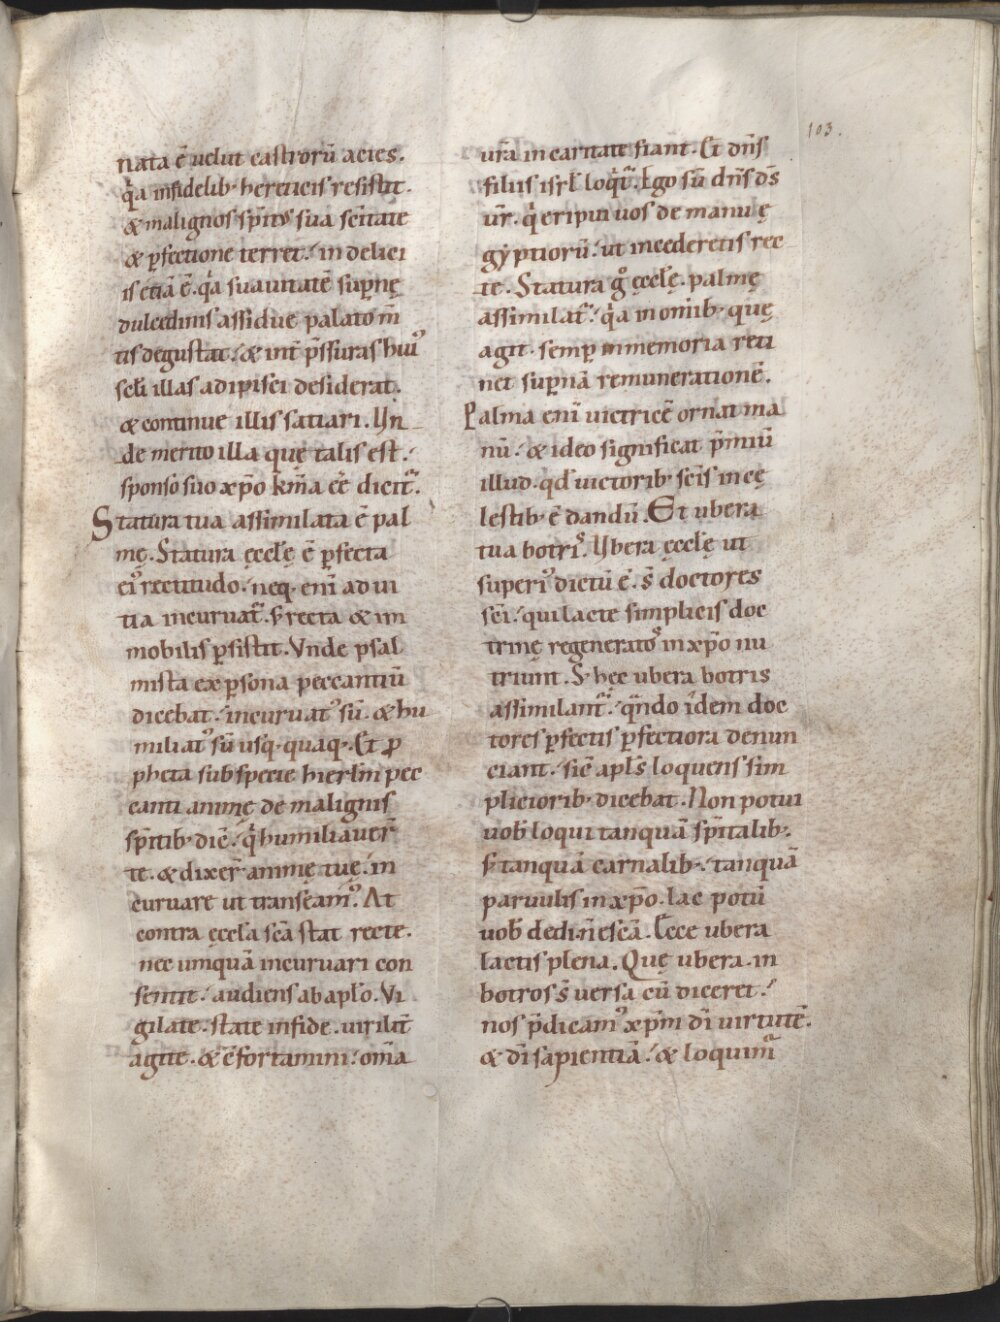 103.
nata ē uelut castrorū acies.
q̇a infidelib; hereticis resistit.
& malignos sp̄itꝰ sua sc̄itate
& ꝑfectione terret. in delici
is etiā ē. q̇a suauitatē supnę
dulcedinis assidue palato m̄
tis degustat. & int̄ p̄ssuras huiꝰ
sc̄li illas adipisci desiderat.
& continue illis satiari. Un
de merito illa quę talis est.
sponso suo xp̄o kr̄ma ēē dicit̄.
Statura tua assimilata ē pal
mę. Statura ęcclę ē ꝑfecta
eiꝰ rectitudo. neq; eni ad ui
tia incuruat̄. s; recta & im
mobilis ꝑsistit. Vnde psal
mista ex ꝑsona peccantiū
dicebat. incuruatꝰ sū. & hu
miliatꝰ sū usq; quaq;. Et ꝓ
pheta sub specie hierl̄m pec
canti animę de malignis
sp̄itib; dic̄. q̇ humiliauer̄
te. & dixer̄ animę tuę. in
curuare ut transeamꝰ. At
contra ęccl̄a sc̄a stat recte.
nec umquā incuruari con
sentit. audiens ab apl̄o. Vi
gilate. state in fide. uirilit̄
agite. & c̄fortamini. om̄a
ur̄a in caritate fiant. Et dn̄s
filiis isr̄l loq̇t̄. Ego sū dn̄s ds̄
ur̄. q̇ eripui uos de manu ę
gyptiorū. ut incederetis rec
te. Statura g̊ ęcclę. palmę
assimilat̄. q̇a in om̄ib; quę
agit. semꝑ in memoria reti
net supnā remunerationē.
Palma eni uictricē ornat ma
nū. & ideo significat p̄miū
illud. qd̄ uictorib; sc̄is in cę
lestib; ē dandū. Et ubera
tua botriꝰ. Ubera ęcclę ut
superiꝰ dictū ē. s̄ doctores
sc̄i. qui lacte simplicis doc
trinę regeneratos in xp̄o nu
triunt. S; hec ubera botris
assimilant̄. qn̄do idem doc
tores ꝑfectis ꝑfectiora denun
ciant. sic̄ apl̄s loquens sim
pliciorib; dicebat. Non potui
uob̄ loqui tanquā sp̄italib;.
s; tanquā carnalib;. tanquā
paruulis in xp̄o. lac potū
uob̄ dedi. n̄ escā. Ecce ubera
lactis plena. Quę ubera. in
botros s̄ uersa cū diceret.
nos p̄dicamꝰ xp̄m di̅ uirtutē.
& di̅ sapientiā. & loquim̄